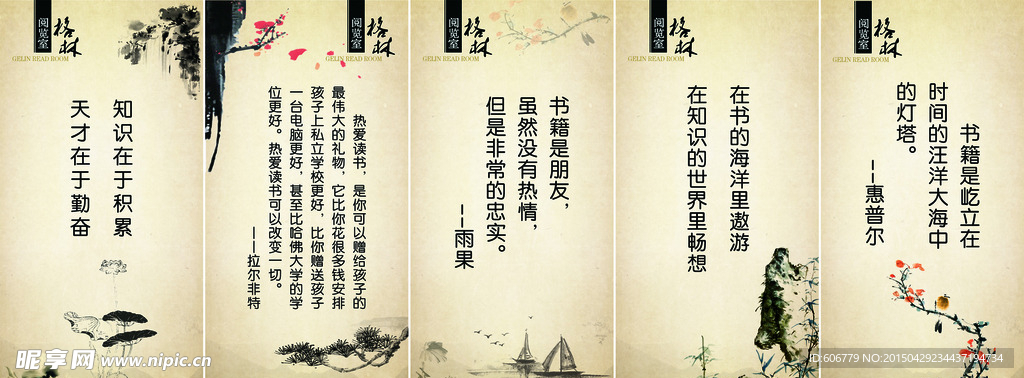 格林
阅览室
GELIN READ ROOM
知识在于积累
天才在于勤奋
格林
阅览室
GELIN READ ROOM
热爱读书，是你可以赠给孩子的
最伟大的礼物，它比你花很多钱安排
孩子上私立学校更好，比你赠送孩子
一台电脑更好，甚至比哈佛大学的学
位更好。热爱读书可以改变一切。
——拉尔非特
格林
阅览室
GELIN READ ROOM
书籍是朋友，
虽然没有热情，
但是非常的忠实。
——雨果
格林
阅览室
GELIN READ ROOM
在书的海洋里遨游
在知识的世界里畅想
格林
阅览室
GELIN READ ROOM
书籍是屹立在
时间的汪洋大海中
的灯塔。
——惠普尔
昵享网 www.nipic.cn
ID:606779 NO:20150429234437194734